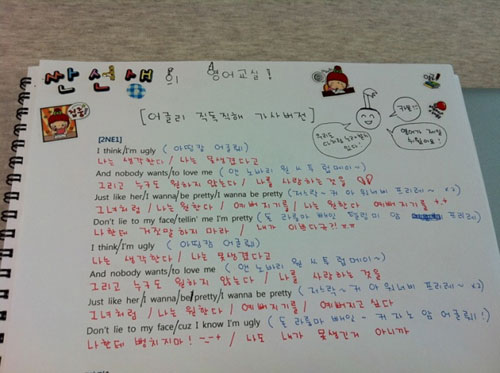 싼 선생의 영어교실!
[어글리 직독직해 가사버전]
[2NE1]
I think/I'm ugly (아띵캄 어글뤼)
나는 생각한다 / 나는 못생겼다고
And nobody wants/to love me (앤 노바리 원 스 투 럽 메이~)
그리고 누구도 원하지 않는다 / 나를 사랑하는 것을
Just like her/I wanna/be pretty/I wanna be pretty
그녀처럼 / 나는 원한다 / 예뻐지기를 / 나는 원한다 예뻐지기를
Don't lie to my face/tellin' me I'm pretty
나한테 거짓말 하지 마라 / 내가 이쁘다구?!ㅠㅠ
I think/I'm ugly (아띵캄 어글뤼)
나는 생각한다 / 나는 못생겼다고
And nobody wants/to love me (앤 노바리 원 스 투 럽 메이~)
그리고 누구도 원하지 않는다 / 나를 사랑하는 것을
Just like her/I wanna/be/pretty/I wanna be pretty
그녀처럼 / 나는 원한다 / 예뻐지기를 / 예뻐지고 싶다
Don't lie to my face/cuz I know I'm ugly
나한테 뻥치지마! / 나도 내가 못생긴거 아니까